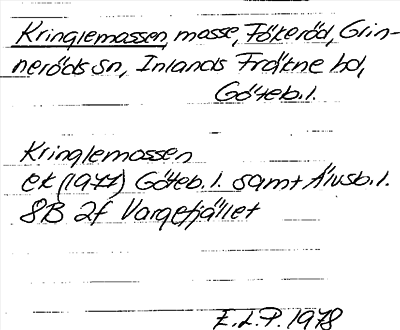 Kringlemossen, mosse, Fökeröd, Grin-
neröds sn, Inlands Fräkne hd,
Göteb. l.
Kringlemossen
ek (1977) Göteb. l. samt Älvsb. l.
8B 2f Vargefjället
E. L. P. 1978